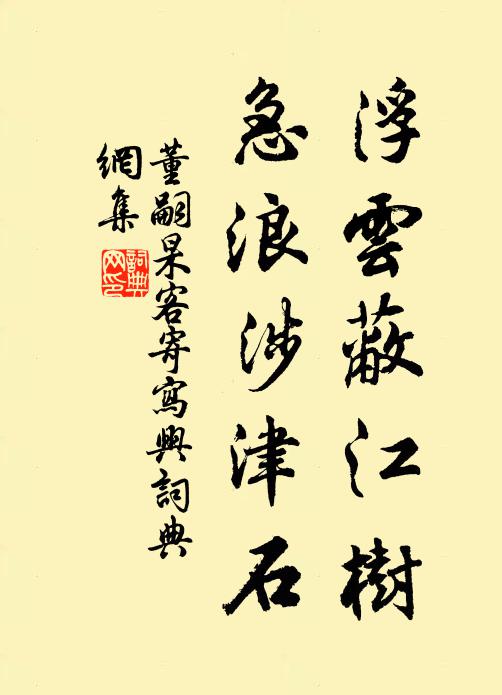 浮雲蔽江樹
急浪涉津石
董嗣杲客寄寫興詞典
網集
詞典
网印